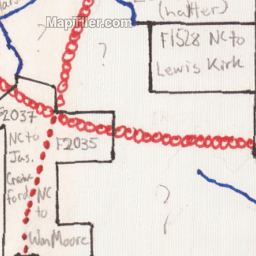 MapTiler.com
(hatter)
F1528 NC to
Lewis Kirk
F2037
NC to
Jas.
Craw
ford
F2035
NC
to
Wm Moore
?
?